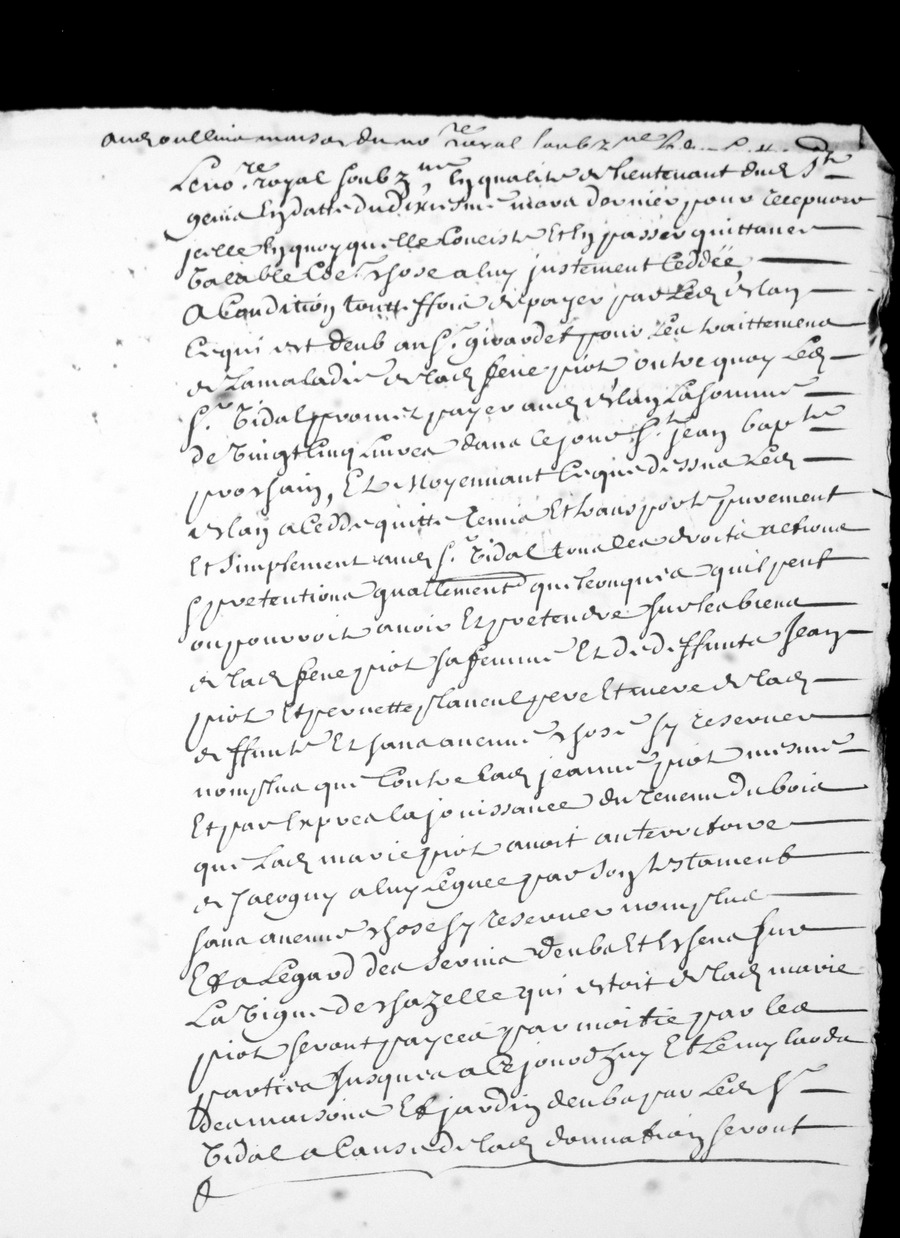 Le no.re royal soubz.ne En qualité de lieutenant dud St
genis En datte du dixiesme mars dernier pour recepvoir
jcelle En quoy quelle Conciste Et En passer quittance
Valable Co.e chose a luy justement Ceddée
A Condition toutteffois de payer par Led
Ce qui est deub au Sr. girardet pour Les traittemens
de La maladie de lad feüe piot outre quoy Led
Sr. Vidal promet payer aud La Somme
de Vingt Cinq Livres dans le jour St. jean bapte
prochain, Et Moyennant Ce que dessus Led
a Cedde quitte Remis Et transporte purement
Et Simplement aud Sr. Vidal tous Les droits actions
pretentions quallement quelconques quil peut
ou pourroit avoir Et pretendre sur Les biens
de lad feüe piot sa femme Et de deffunts Jean
piot Et pernette pere Et mere de lad
deffunte Et sans aucune chose sy reserver
non plus que Contre lad jeanne piot mesme
Et par Exprés la joüissance du revenu du bois
que Lad marie piot avoit au territoire
de Jacogny a luy Leguee par son testament
sans aucune chose sy reserver non plus
Et a Legard des Servis deubs Et Escheus sur
La Vigne de chazelle qui estoit de lad marie
piot seront payees par moitie par les
parties jusques a Ce jourdhuy Et Les my lods
des maisons Et jardin deubs par Led Sr
Vidal a Cause de lad donnation seront